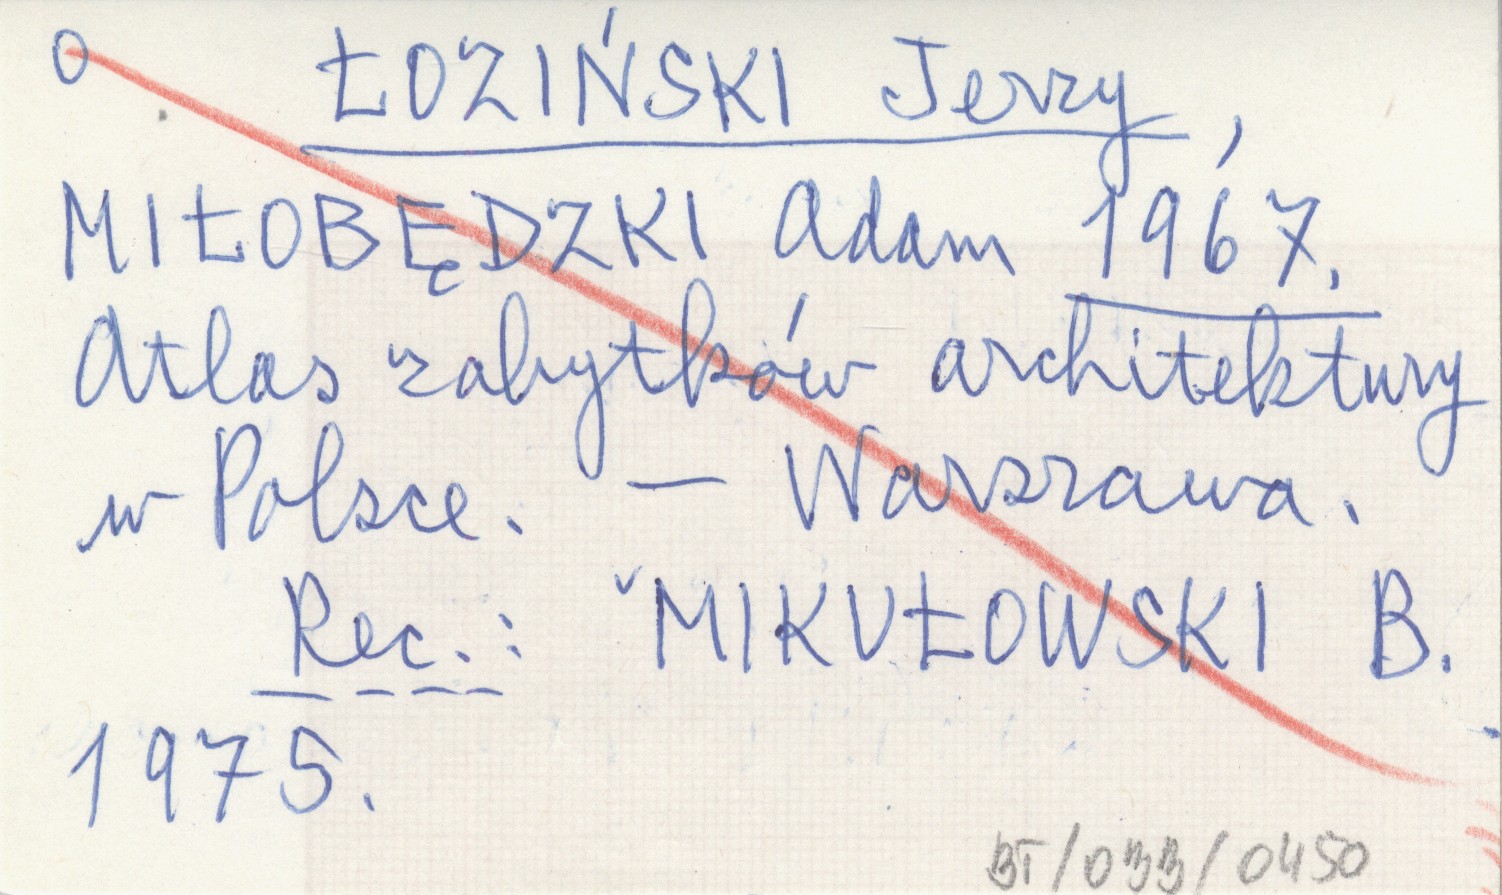 O ŁOZIŃSKI Jerzy,
MIŁOBĘDZKI Adam 1967.
Atlas zabytków architektury
w Polsce. — Warszawa.
Rec.: MIKUŁOWSKI B.
1975.
BT/033/0450